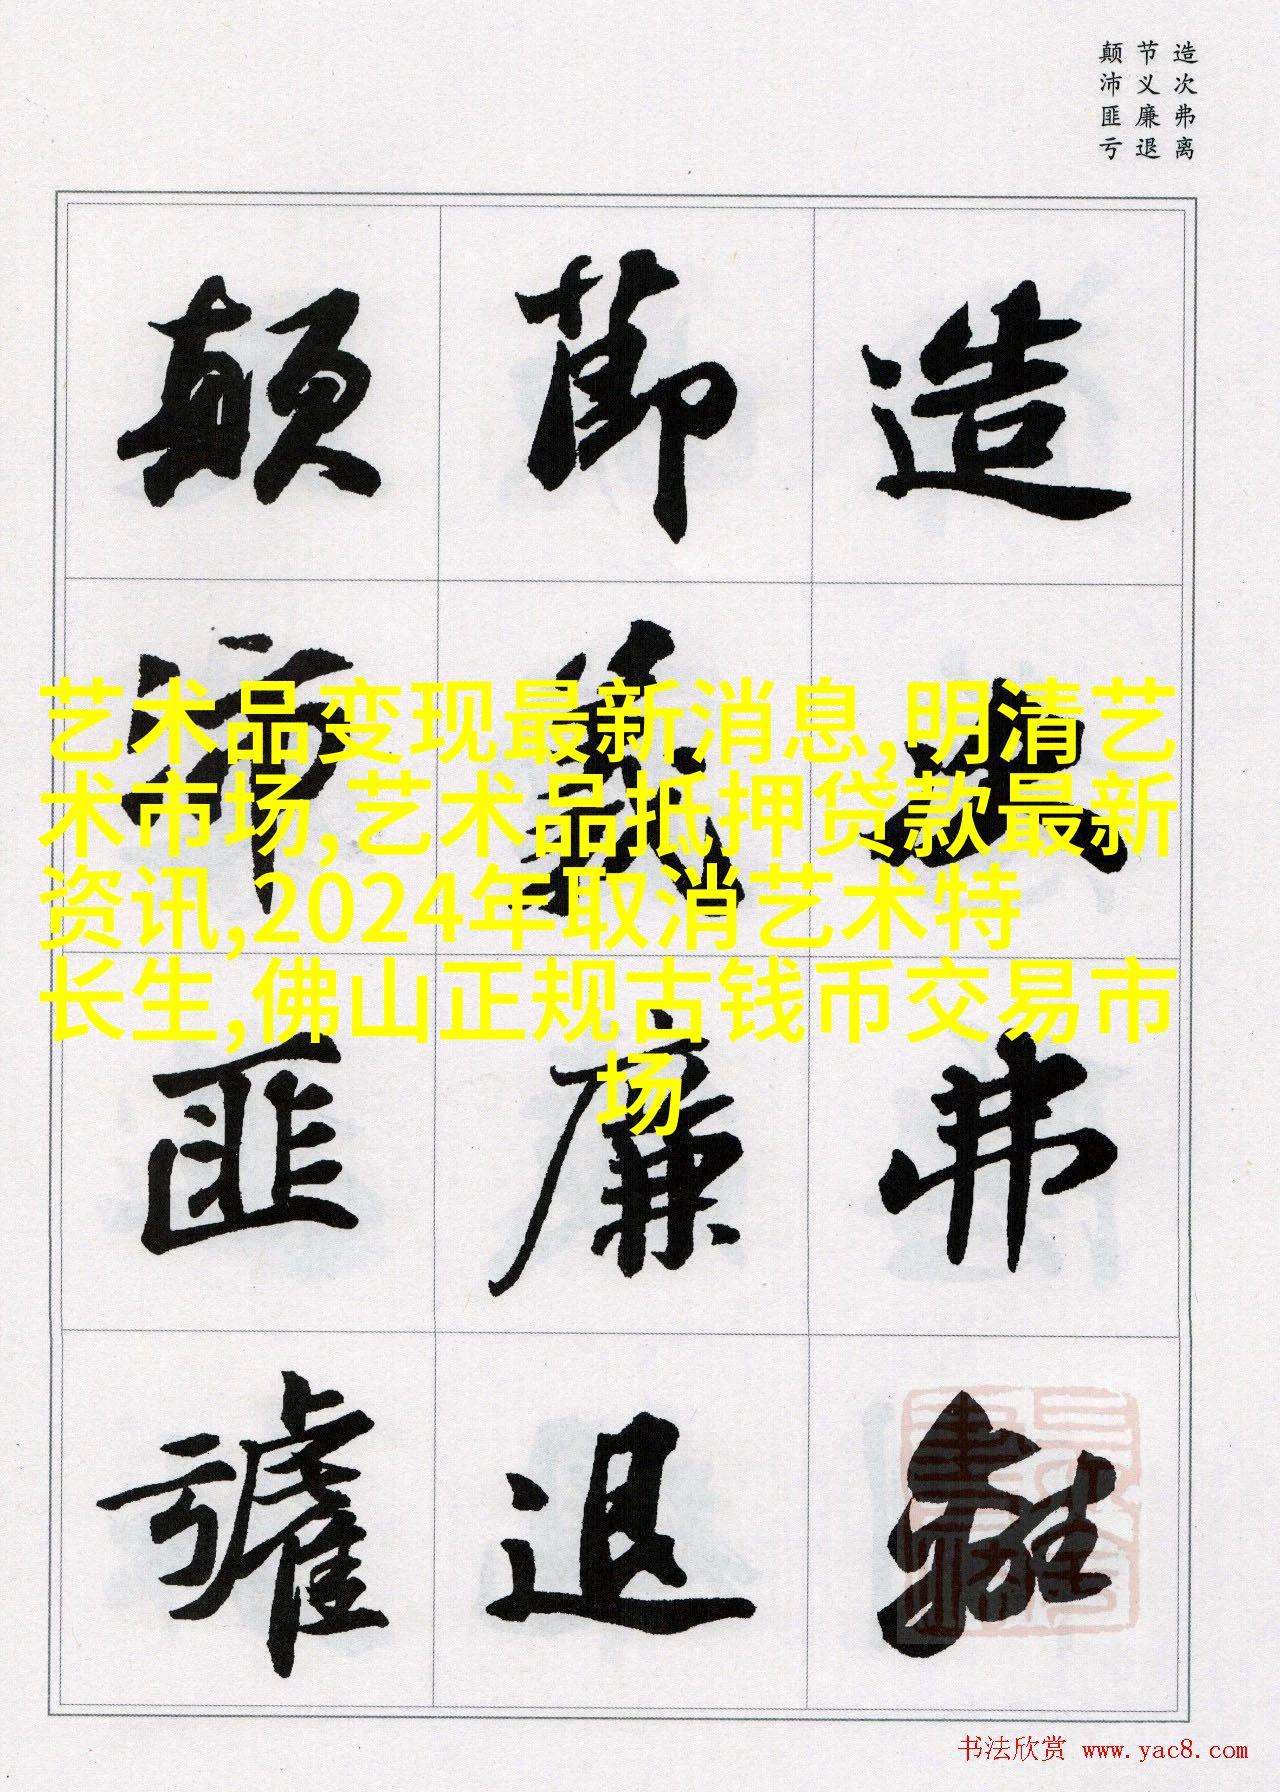 造次弗离
节义廉退
颠沛匪亏
造次弗離
節義廉退
顛沛匪虧
艺术品变现最新消息,明清艺
术市场,艺术品抵押贷款最新
资讯,2024年取消艺术特
长生,佛山正规古钱币交易市
场
书法欣赏 www.yac8.com